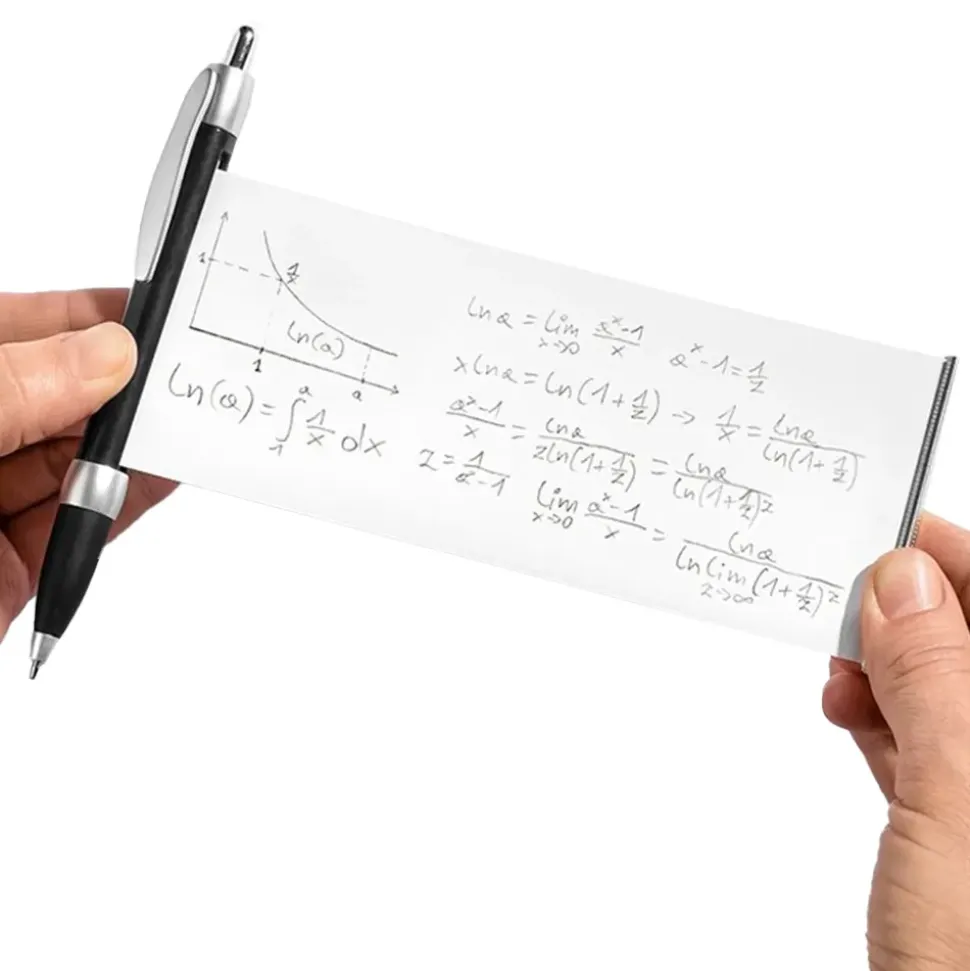 1
1/x
ln(a)
1
a
ln(a) = ∫₁ᵃ 1/x dx
ln a = lim x→0 (aˣ-1)/x   aˣ-1 = 1/z
x ln a = ln(1+1/z) → 1/x = ln a / ln(1+1/z)
(aˣ-1)/x = ln a / (z ln(1+1/z)) = ln a / ln(1+1/z)ᶻ
z = 1/(aˣ-1)
lim x→0 (aˣ-1)/x = ln a / (ln lim z→∞ (1+1/z)ᶻ)